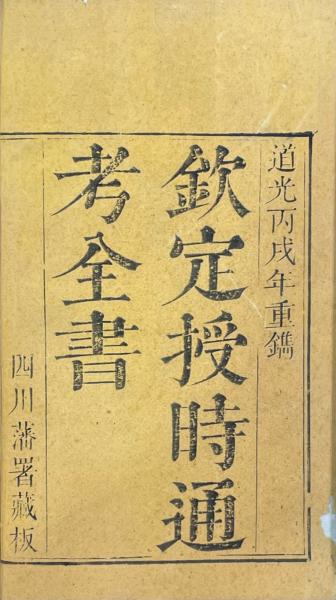 道光丙戌年重鐫
欽定授時通
考全書
四川藩署藏板